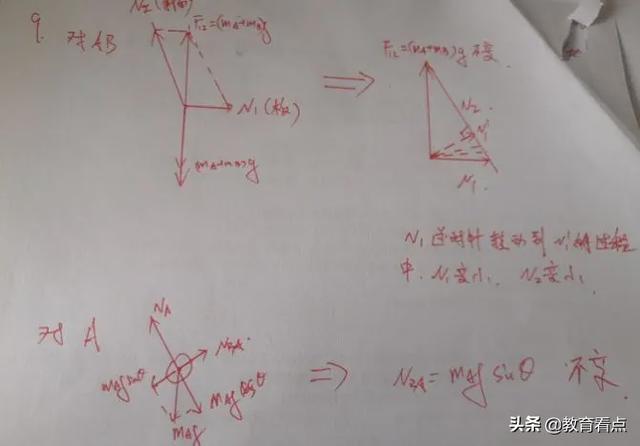 9.
N₂(斜面)
对AB
F₁₂=(mA+mB)g
N₁(板)
(mA+mB)g
⇒
F₁₂=(mA+mB)g 不变.
N₂.
N₁'
N₁.
N₁逆时针转动到N₁'的过程
中. N₁变小. N₂变小.
对A
NA
NBA.
mAg sinθ
mAg cosθ
mAg
⇒
NBA=mAg sinθ 不变.
头条@教育看点